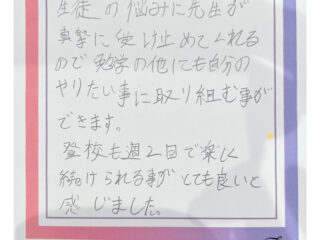 生徒の悩みに先生が
真摯に受け止めてくれる
ので勉学の他にも自分の
やりたい事に取り組む事が
できます。
登校も週2日で楽しく
続けられる事がとても良いと
感じました。